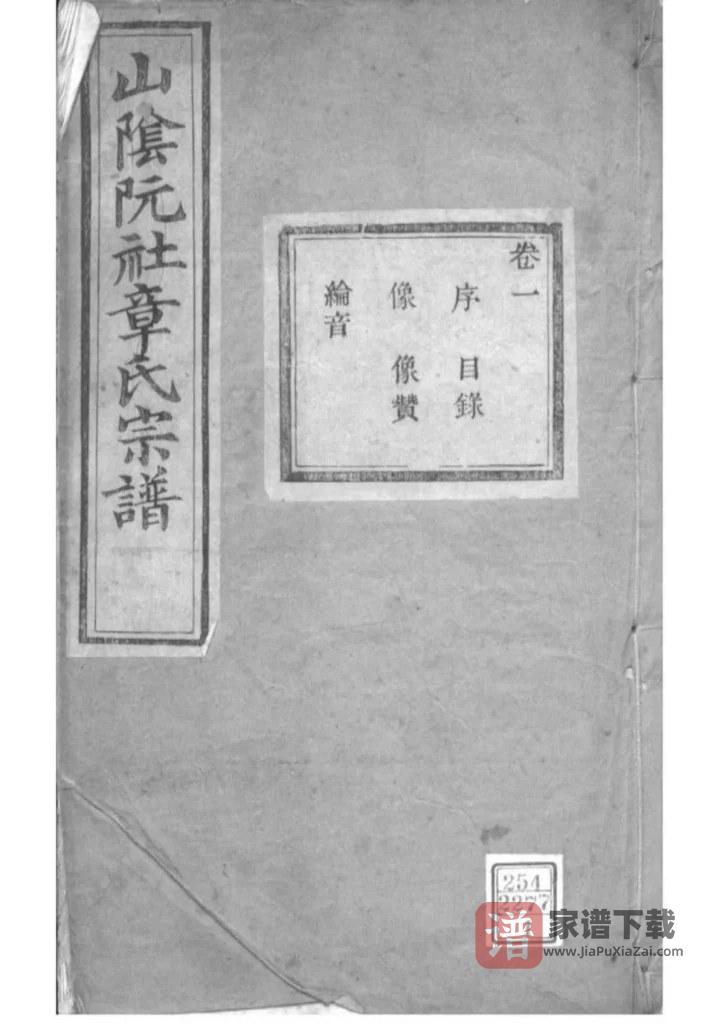 山隂阮社章氏宗譜
卷一
序 目錄
像 像贊
綸音
254
2277
谱
家谱下载
www.JiaPuXiaZai.com